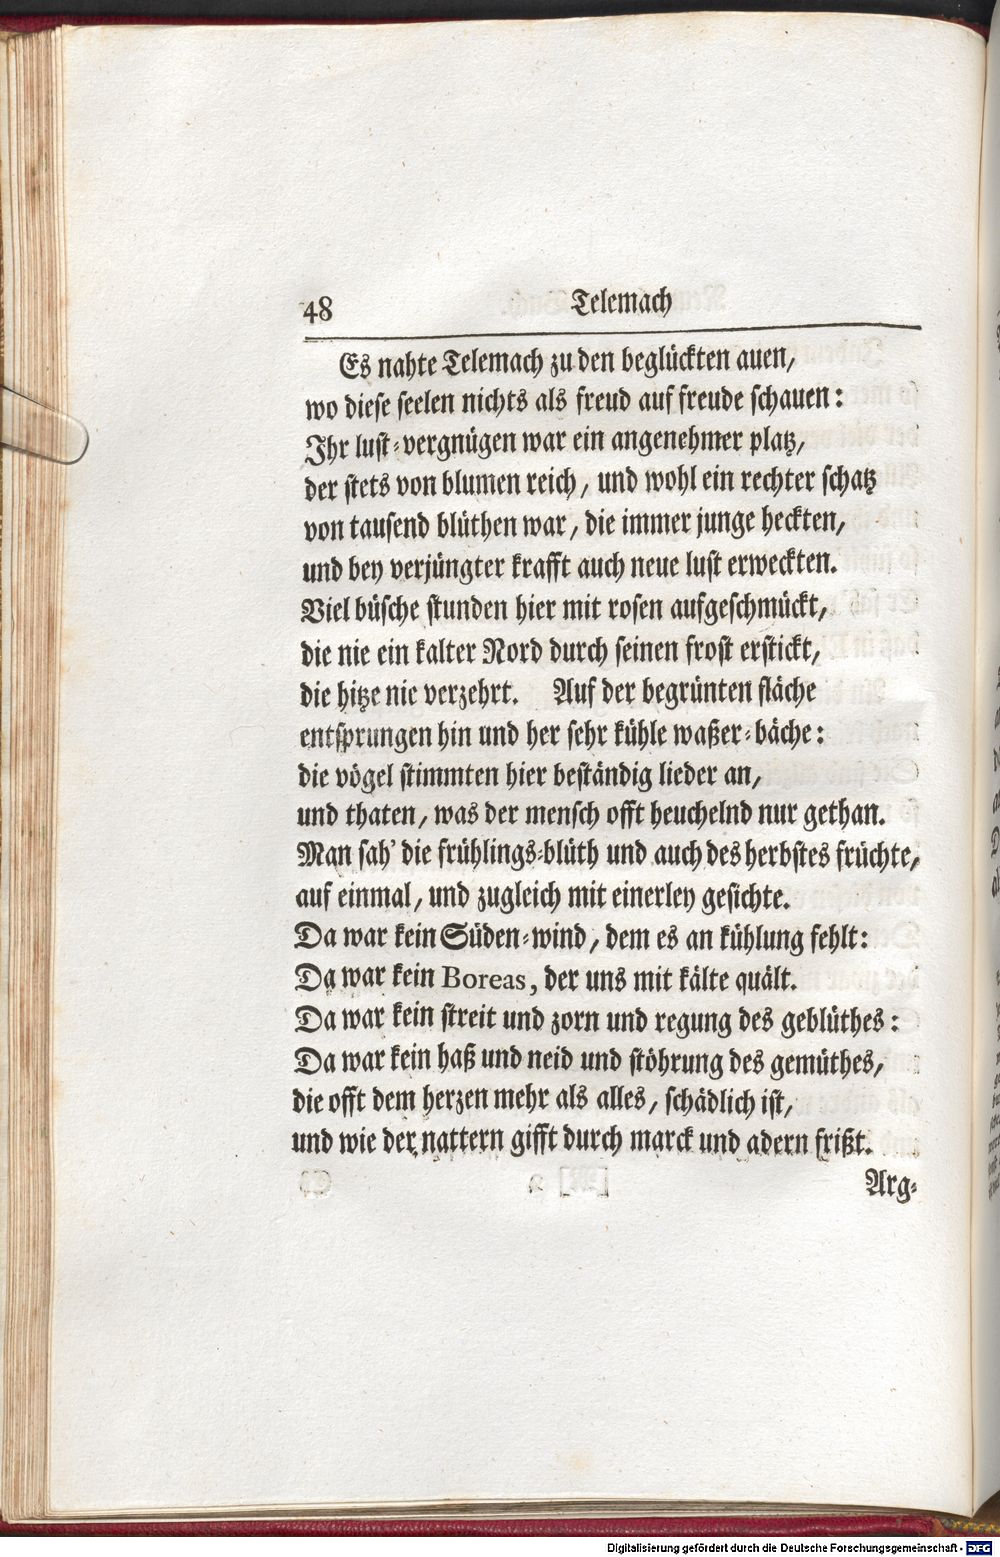 48 Telemach
Es nahte Telemach zu den beglückten auen,
wo diese seelen nichts als freud auf freude schauen:
Ihr lust-vergnügen war ein angenehmer platz,
der stets von blumen reich, und wohl ein rechter schatz
von tausend blüthen war, die immer junge heckten,
und bey verjüngter krafft auch neue lust erweckten.
Viel büsche stunden hier mit rosen aufgeschmückt,
die nie ein kalter Nord durch seinen frost erstickt,
die hitze nie verzehrt. Auf der begrünten fläche
entsprungen hin und her sehr kühle waßer-bäche:
die vögel stimmten hier beständig lieder an,
und thaten, was der mensch offt heuchelnd nur gethan.
Man sah' die frühlings-blüth und auch des herbstes früchte,
auf einmal, und zugleich mit einerley gesichte.
Da war kein Süden-wind, dem es an kühlung fehlt:
Da war kein Boreas, der uns mit kälte quält.
Da war kein streit und zorn und regung des geblüthes:
Da war kein haß und neid und stöhrung des gemüthes,
die offt dem herzen mehr als alles, schädlich ist,
und wie der nattern gifft durch marck und adern frißt.
Arg-
Digitalisierung gefördert durch die Deutsche Forschungsgemeinschaft - DFG